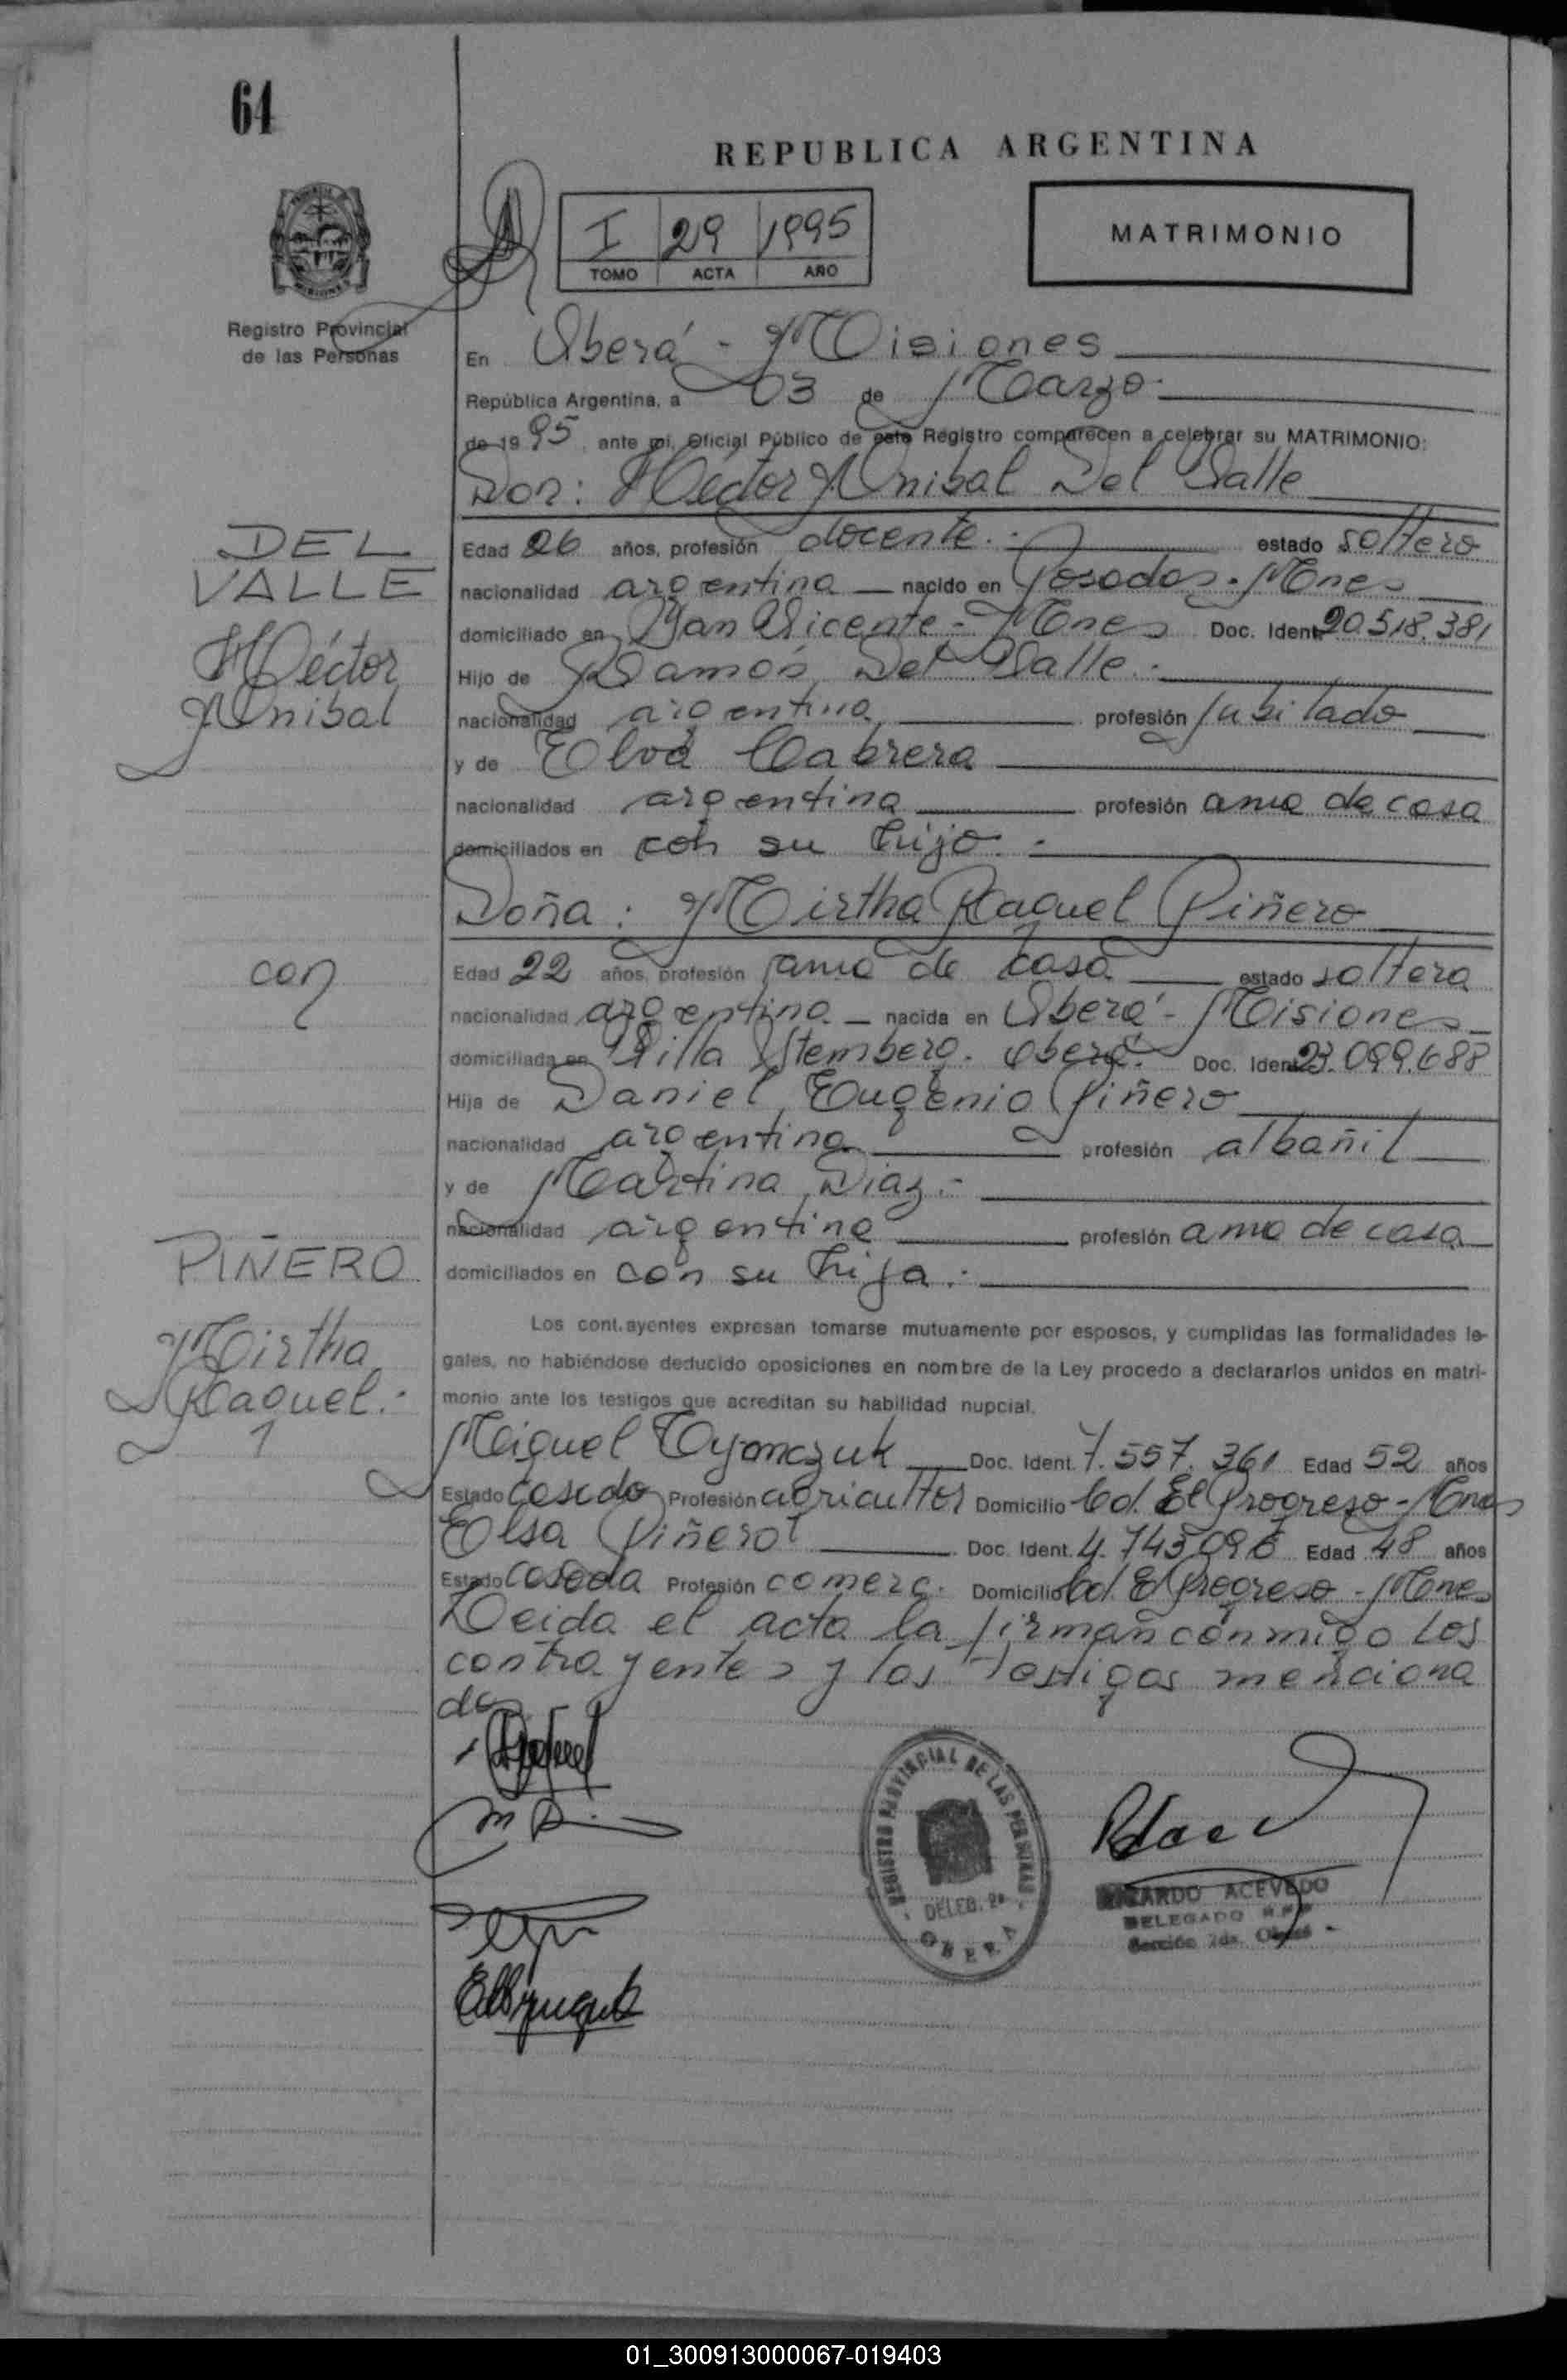 64
REPUBLICA ARGENTINA
I 29 1995
TOMO ACTA AÑO
MATRIMONIO
Registro Provincial
de las Personas
En Oberá - Misiones
República Argentina, a 03 de Marzo
de 1995, ante mi, Oficial Público de este Registro comparecen a celebrar su MATRIMONIO:
Don: Héctor Anibal Del Valle
DEL
VALLE
Héctor
Anibal
Edad 26 años, profesión docente.- estado soltero
nacionalidad argentina nacido en Posadas - Mnes
domiciliado en San Vicente - Mnes Doc. Ident. 20.518.381
Hijo de Ramón Del Valle.-
nacionalidad argentina profesión Jubilado
y de Elva Cabrera
nacionalidad argentina profesión ama de casa
domiciliados en con su hijo.-
Doña: Mirtha Raquel Piñero
con
Edad 22 años, profesión ama de casa estado soltera
nacionalidad argentina nacida en Oberá - Misiones
domiciliada en Villa Stemberg. Oberá. Doc. Ident. 23.099.688
Hija de Daniel Eugenio Piñero
nacionalidad argentina profesión albañil
y de Martina Diaz.-
nacionalidad argentina profesión ama de casa
domiciliados en con su hija.-
PIÑERO
Mirtha
Raquel.-
1
Los contrayentes expresan tomarse mutuamente por esposos, y cumplidas las formalidades le-
gales, no habiéndose deducido oposiciones en nombre de la Ley procedo a declararlos unidos en matri-
monio ante los testigos que acreditan su habilidad nupcial.
Miguel Doc. Ident. 7.557.361 Edad 52 años
Estado Casado Profesión agricultor Domicilio Cd. El Progreso - Mnes
Elsa Piñero Doc. Ident. 4.743.096 Edad 48 años
Estado Casada Profesión comerc. Domicilio Cd. El Progreso - Mnes
Leida el acta la firman conmigo los
contrayentes y los testigos menciona
dos.
REGISTRO PROVINCIAL DE LAS PERSONAS
DELEG. 2a
OBERA
RICARDO ACEVEDO
DELEGADO R.P.P
Sección 2da. Oberá
01_300913000067-019403